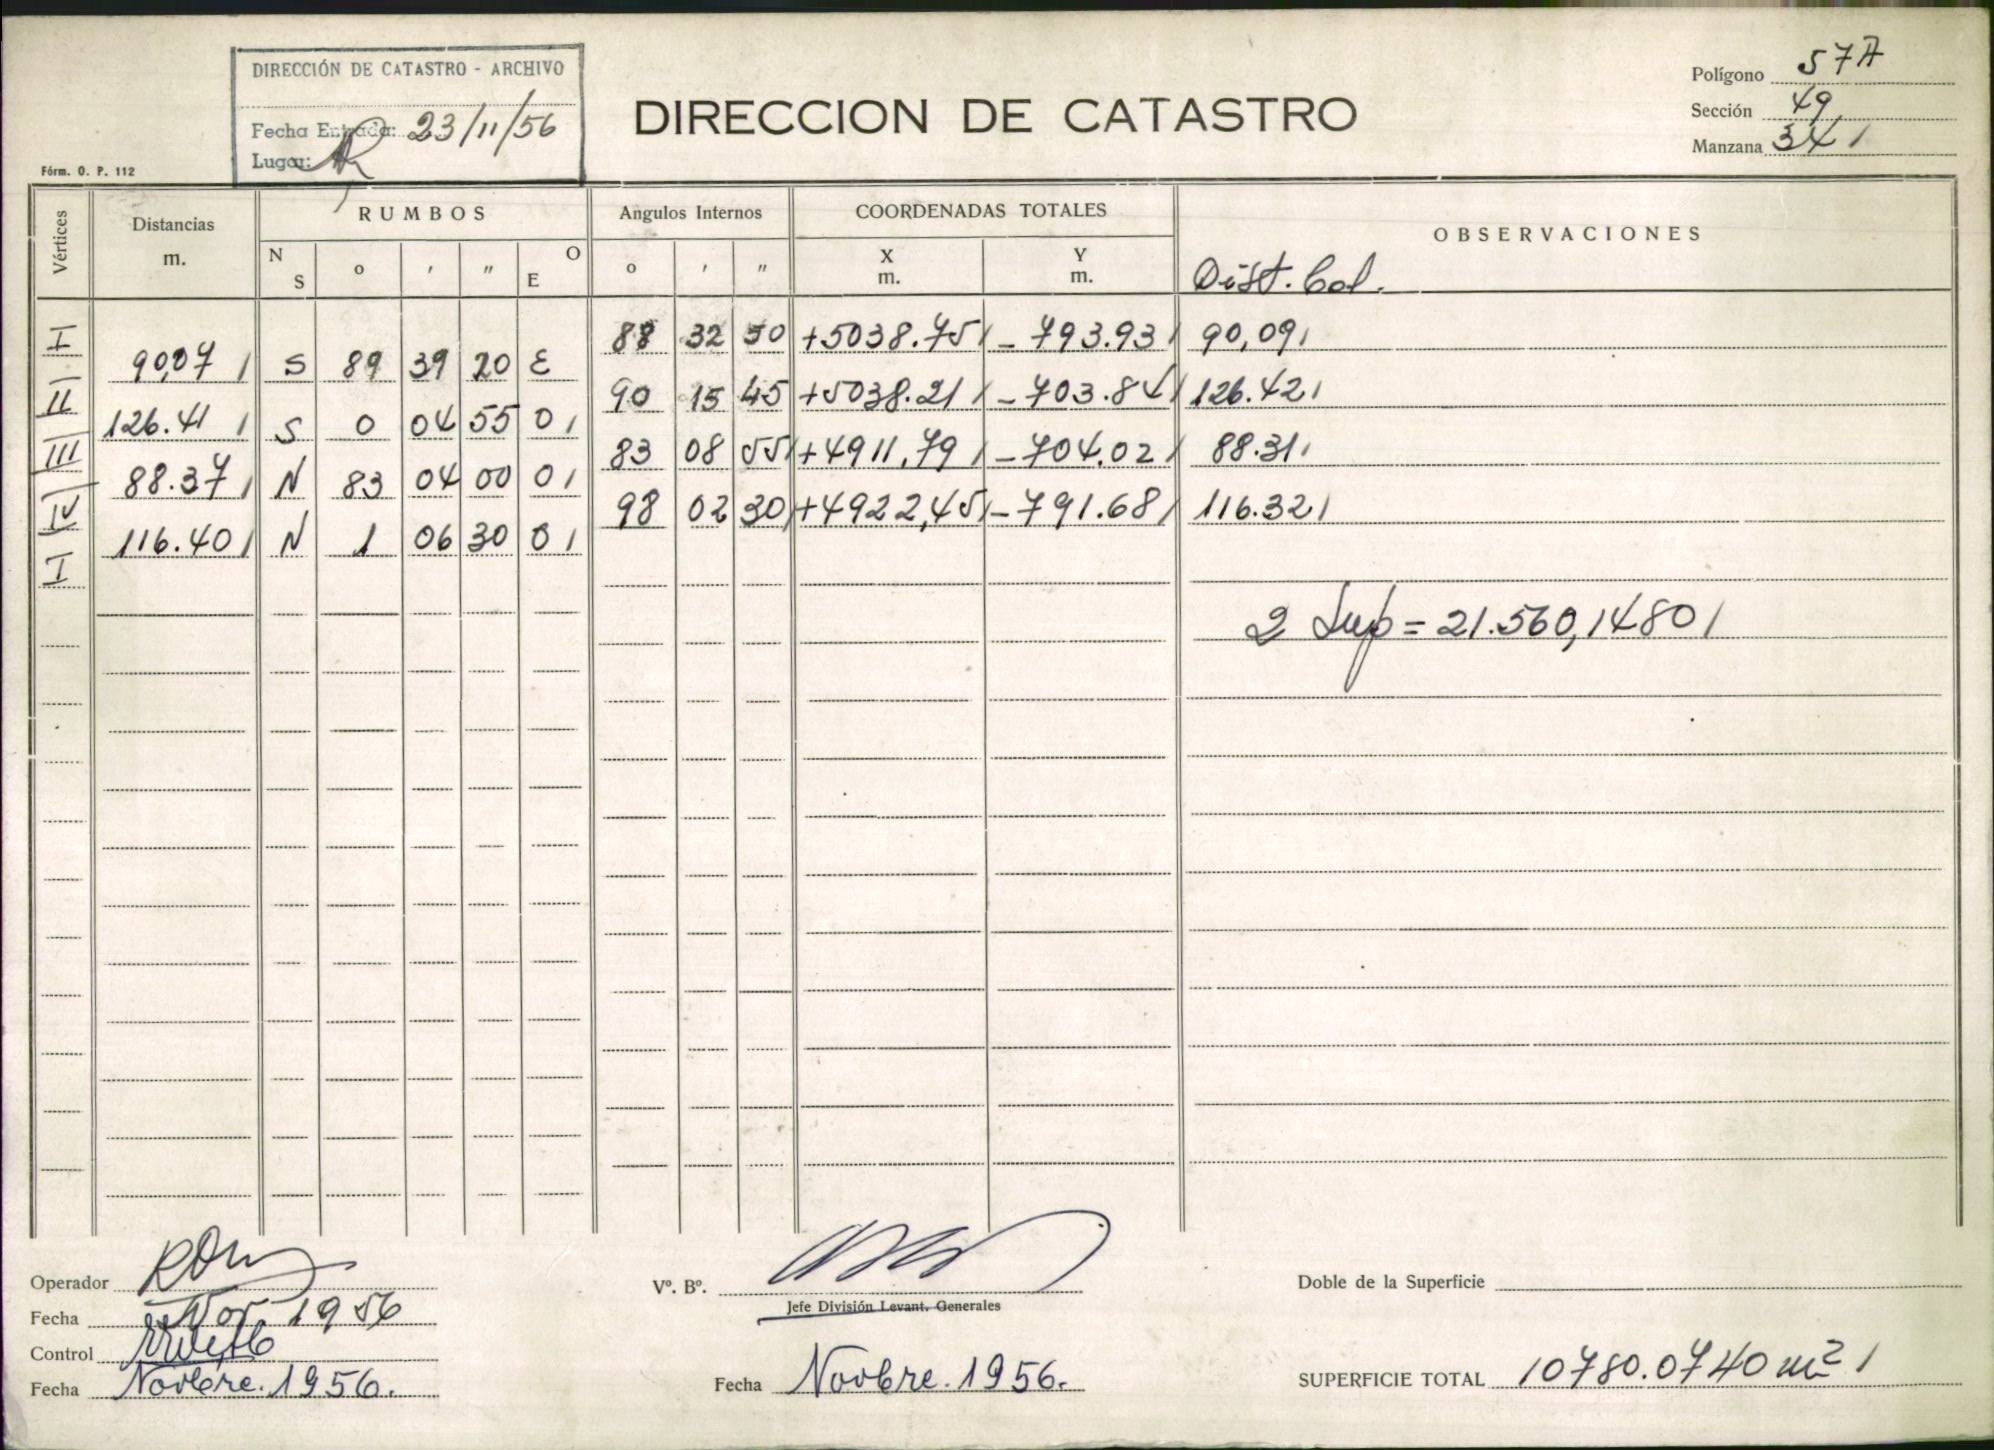 DIRECCIÓN DE CATASTRO - ARCHIVO
Fecha Entrada: 23/11/56
Lugar:
DIRECCION DE CATASTRO
Polígono 57A
Sección 49
Manzana 341
Fórm. O. P. 112
Vértices Distancias m. RUMBOS Angulos Internos COORDENADAS TOTALES OBSERVACIONES
N S o ' " O E o ' " X m. Y m. Dist. Cal.
I 88 32 50 +5038.75 - 793.93 90,09
90,07 S 89 39 20 E
II 90 15 45 +5038.21 - 703.84 126.42
126.41 S 0 04 55 O
III 83 08 55 +4911,79 - 704.02 88.31
88.37 N 83 04 00 O
IV 98 02 30 +4922,45 - 791.68 116.32
116.40 N 1 06 30 O
I
2 Sup = 21.560,1480
Operador
Fecha Nov 1956
Control
Fecha Novbre. 1956.
Vº. Bº.
Jefe División Levant. Generales
Fecha Novbre. 1956.
Doble de la Superficie
SUPERFICIE TOTAL 10780.0740 m2